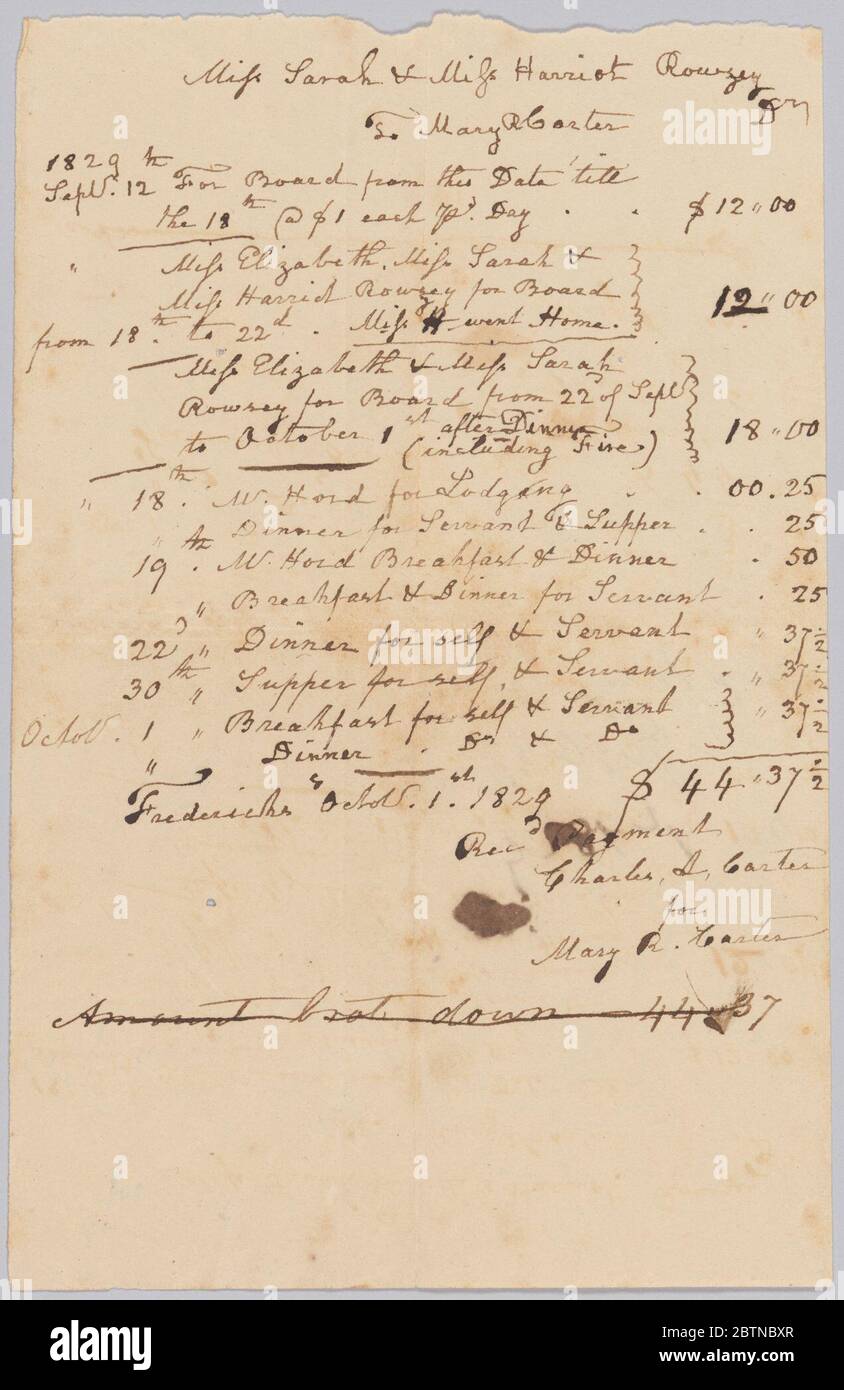 Miss Sarah & Miss Harriot Rowzey
To Mary R Carter Dr
1829
Sept. 12th For Board from this Date till
the 18th @ $1 each pr. Day . . $ 12 " 00
" Miss Elizabeth, Miss Sarah &
Miss Harriot Rowzey for Board
from 18th. to 22d . Miss H went Home. 12 " 00
Miss Elizabeth & Miss Sarah
Rowzey for Board from 22d of Sept
to October 1st after Dinner
(including Fire) 18 " 00
" 18th. W. Hord for Lodging . . 00 . 25
" Dinner for Servant & Supper . . 25
19th. W. Hord Breakfast & Dinner . 50
" Breakfast & Dinner for Servant . 25
22d " Dinner for self & Servant " 37 1/2
30th " Supper for self, & Servant . " 37 1/2
Octob. 1 " Breakfast for self & Servant " 37 1/2
" Dinner . Do & Do
$ 44 " 37 1/2
Fredericks Octob. 1st. 1829
Recd Payment
Charles, A, Carter
for
Mary R. Carter
Amount brot. down 44 " 37
alamy
Image ID: 2BTNBXR
www.alamy.com